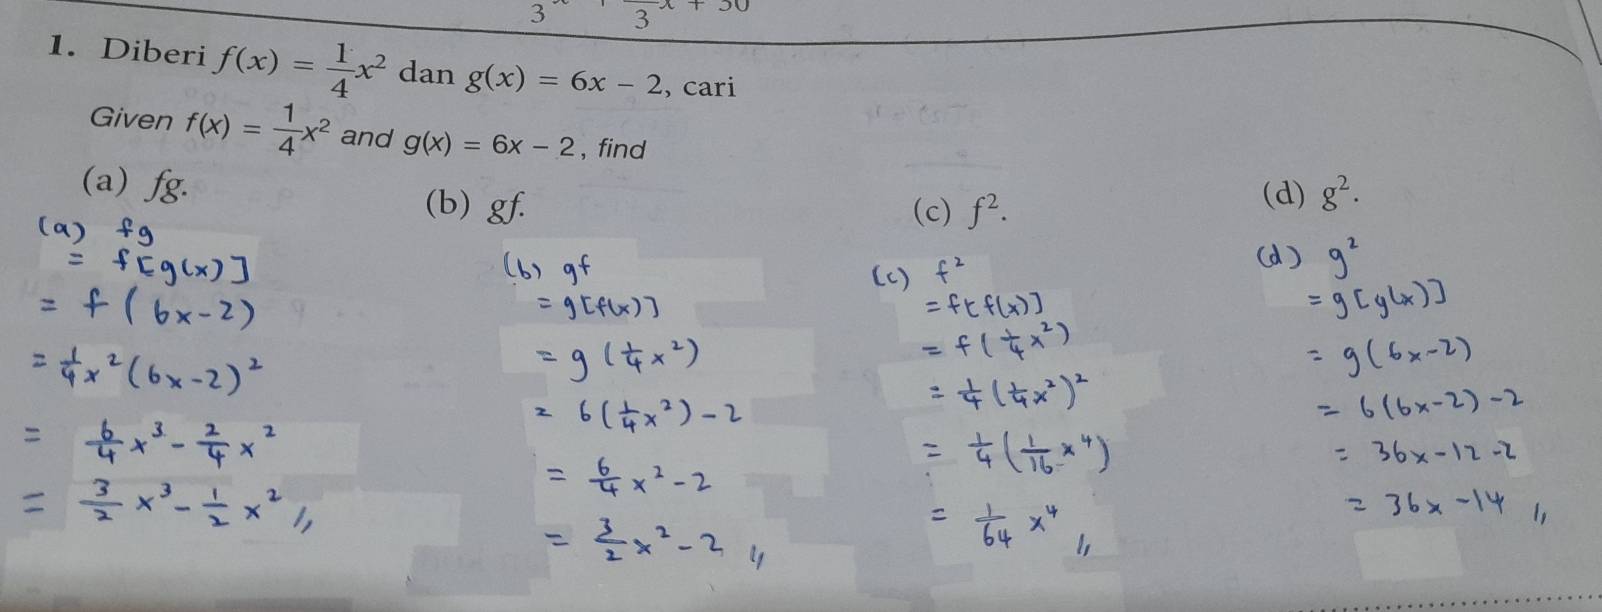 3 3 x + 30
1. Diberi f(x) = 1/4 x² dan g(x) = 6x – 2, cari
Given f(x) = 1/4 x² and g(x) = 6x – 2, find
(a) fg.
(b) gf.
(c) f².
(d) g².
(a) fg
= f[g(x)]
= f(6x-2)
= 1/4 x² (6x-2)²
= 6/4 x³ - 2/4 x²
= 3/2 x³ - 1/2 x² //
(b) gf
= g[f(x)]
= g(1/4 x²)
= 6(1/4 x²) - 2
= 6/4 x² - 2
= 3/2 x² - 2 //
(c) f²
= f[f(x)]
= f(1/4 x²)
= 1/4 (1/4 x²)²
= 1/4 (1/16 x⁴)
= 1/64 x⁴ //
(d) g²
= g[g(x)]
= g(6x-2)
= 6(6x-2) - 2
= 36x - 12 - 2
= 36x - 14 //